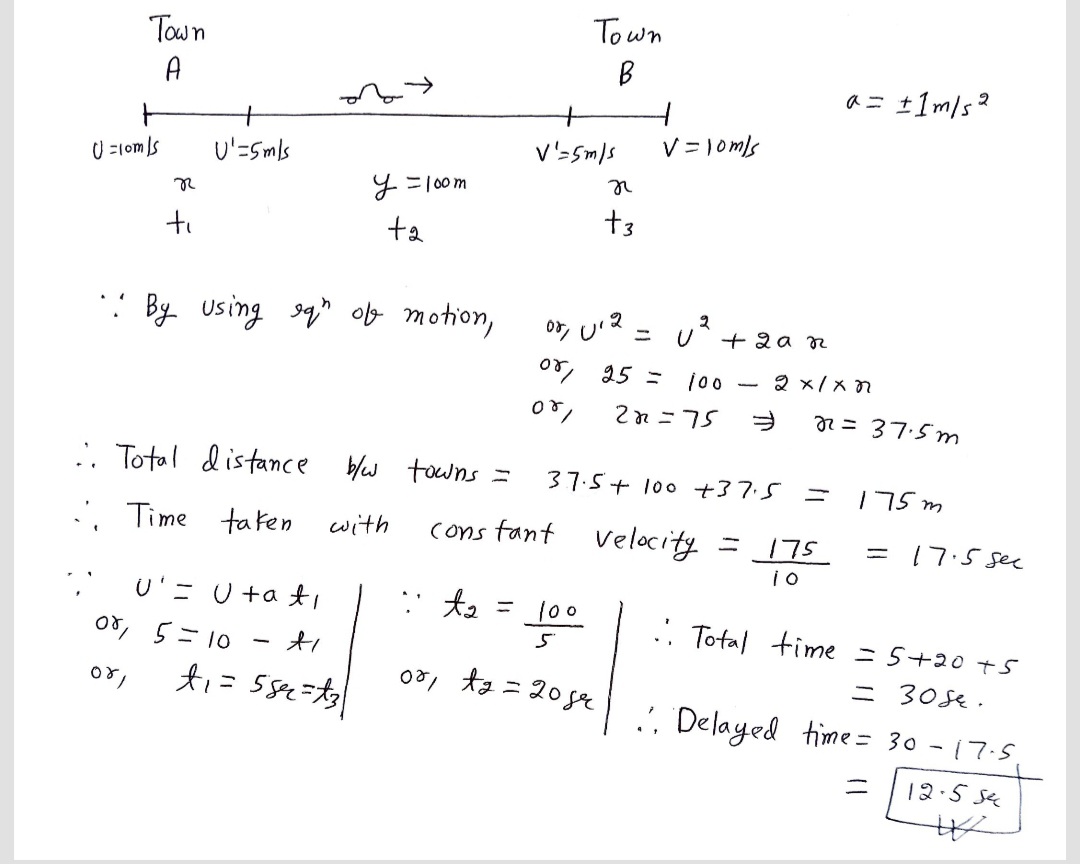 Town Town
A B
a = ±1m/s²
U=10m/s U'=5m/s V'=5m/s V=10m/s
x y=100m x
t₁ t₂ t₃
∵ By using eqⁿ of motion, or, U'² = U² + 2ax
or, 25 = 100 - 2×1×x
or, 2x = 75 ⇒ x = 37.5m
∴ Total distance b/w towns = 37.5+100+37.5 = 175m
∴ Time taken with constant velocity = 175/10 = 17.5 sec
∵ U' = U+at₁
or, 5=10 - t₁
or, t₁ = 5sec=t₃
∵ t₂ = 100/5
or, t₂ = 20sec
∴ Total time = 5+20+5
= 30sec.
∴ Delayed time = 30-17.5
= 12.5 sec